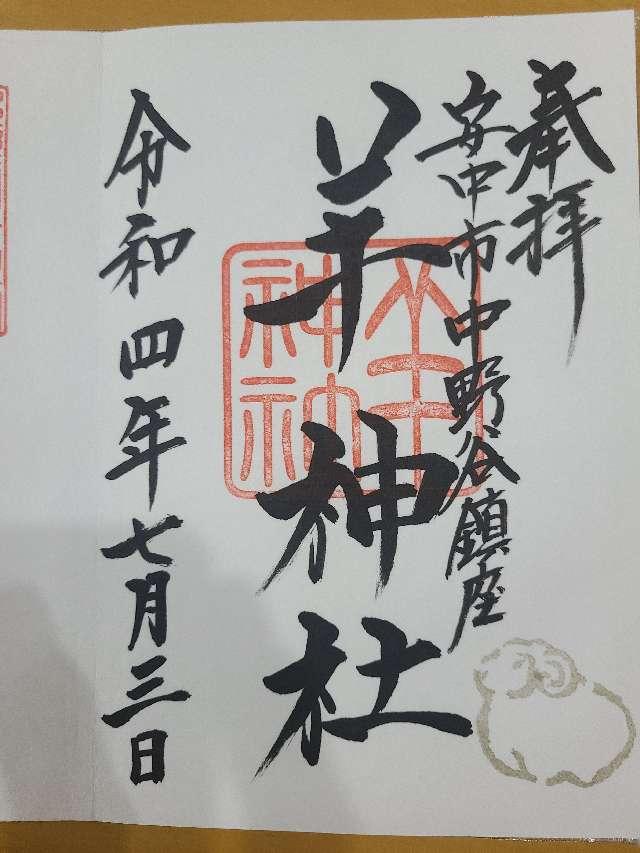 奉拝
安中市中野谷鎮座
羊神社
羊神社
令和四年七月三日